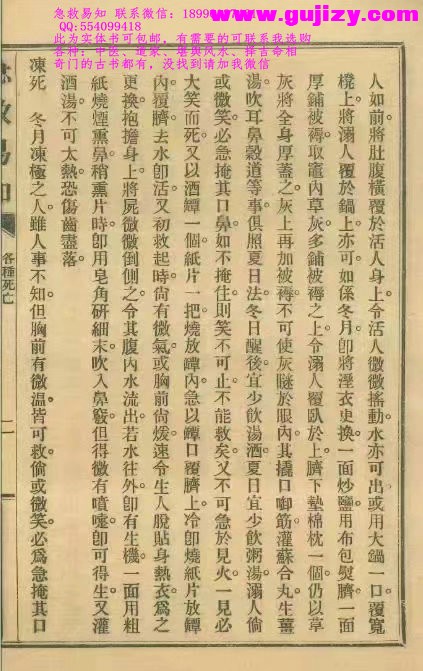 急救易知 联系微信:
QQ:554099418
www.gujizy.com
此为实体书可包邮，有需要的可联系我选购
各种：中医、道家、堪舆风水、择吉命相
奇门的古书都有，没找到请加我微信
人如前將肚腹橫覆於活人身上令活人微微搖動水亦可出或用大鍋一口覆寬
櫈上將溺人覆於鍋上亦可如係冬月卽將溼衣更換一面炒鹽用布包熨臍一面
厚鋪被褥取竈內草灰多鋪被褥之上令溺人覆臥於上臍下墊棉枕一個仍以草
灰將全身厚蓋之灰上再加被褥不可使灰瞇於眼內其撬口啣筋灌蘇合丸生薑
湯吹耳鼻穀道等事俱照夏日法冬日醒後宜少飲湯酒夏日宜少飲粥湯溺人倘
或微笑必急掩其口鼻如不掩住則笑不可止不能救矣又不可急於見火一見必
大笑而死又以酒罈一個紙片一把燒放罈內急以罈口覆臍上冷卽燒紙片放罈
內覆臍去水卽活又初救起時尙有微氣或胸前尙煖速令生人脫貼身熱衣爲之
更換抱擔身上將屍微微倒側之令其腹內水流出若水往外卽有生機一面用粗
紙燒煙熏鼻稍熏片時卽用皂角硏細末吹入鼻竅但得微有噴嚏卽可得生又灌
酒湯不可太熱恐傷齒盡落
凍死　冬月凍極之人雖人事不知但胸前有微溫皆可救倘或微笑必爲急掩其口
各種死亡